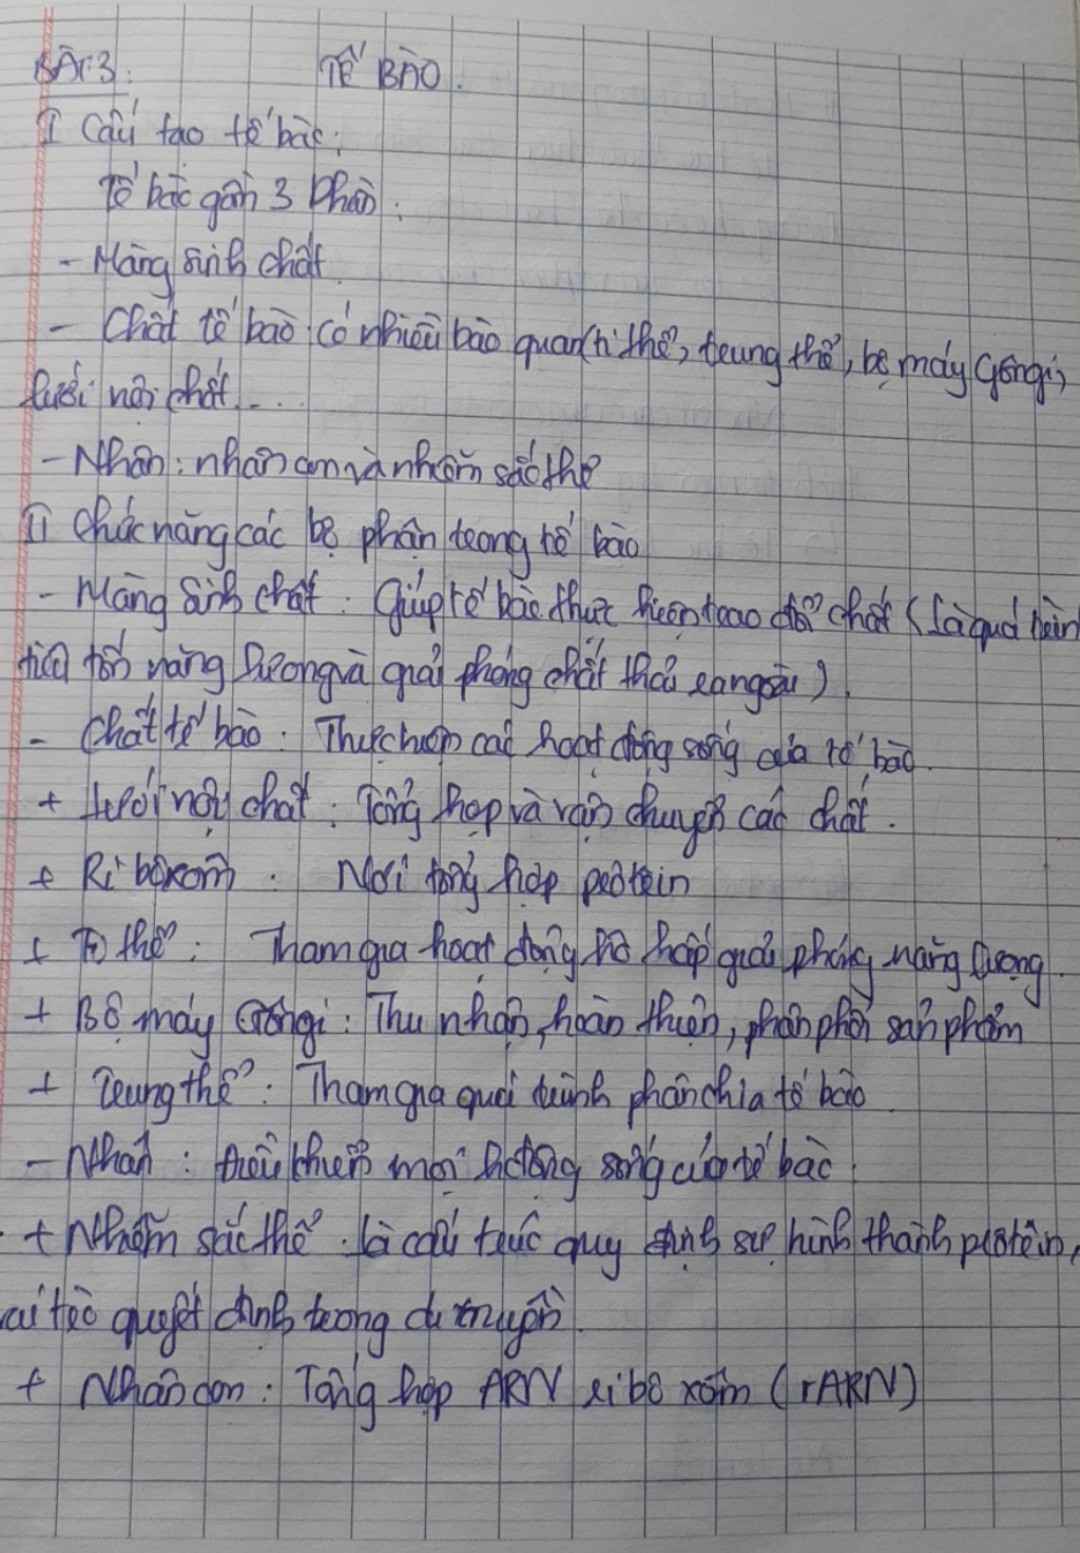 BÀI 3: TẾ BÀO.
I Cấu tạo tế bào:
Tế bào gồm 3 phần:
- Màng sinh chất
- Chất tế bào có nhiều bào quan (ti thể, trung thể, bộ máy Gôngi,
lưới nội chất...
- Nhân: nhân con và nhiễm sắc thể
II Chức năng các bộ phận trong tế bào
- Màng sinh chất: Giúp tế bào thực hiện trao đổi chất (là quá trình
tổn năng lượng và giải phóng chất thải ra ngoài).
- Chất tế bào: Thực hiện các hoạt động sống của tế bào.
+ Lưới nội chất: Tổng hợp và vận chuyển các chất.
+ Ri bôxôm: Nơi tổng hợp prôtêin
+ Ti thể: Tham gia hoạt động hô hấp giải phóng năng lượng.
+ Bộ máy Gôngi: Thu nhận, hoàn thiện, phân phối sản phẩm
+ Trung thể: Tham gia quá trình phân chia tế bào
- Nhân: điều khiển mọi hđ sống của tế bào.
+ Nhiễm sắc thể: là cấu trúc quy định sự hình thành prôtêin,
quyết định trong di truyền.
+ Nhân con: Tổng hợp ARN ri bô xôm (rARN)